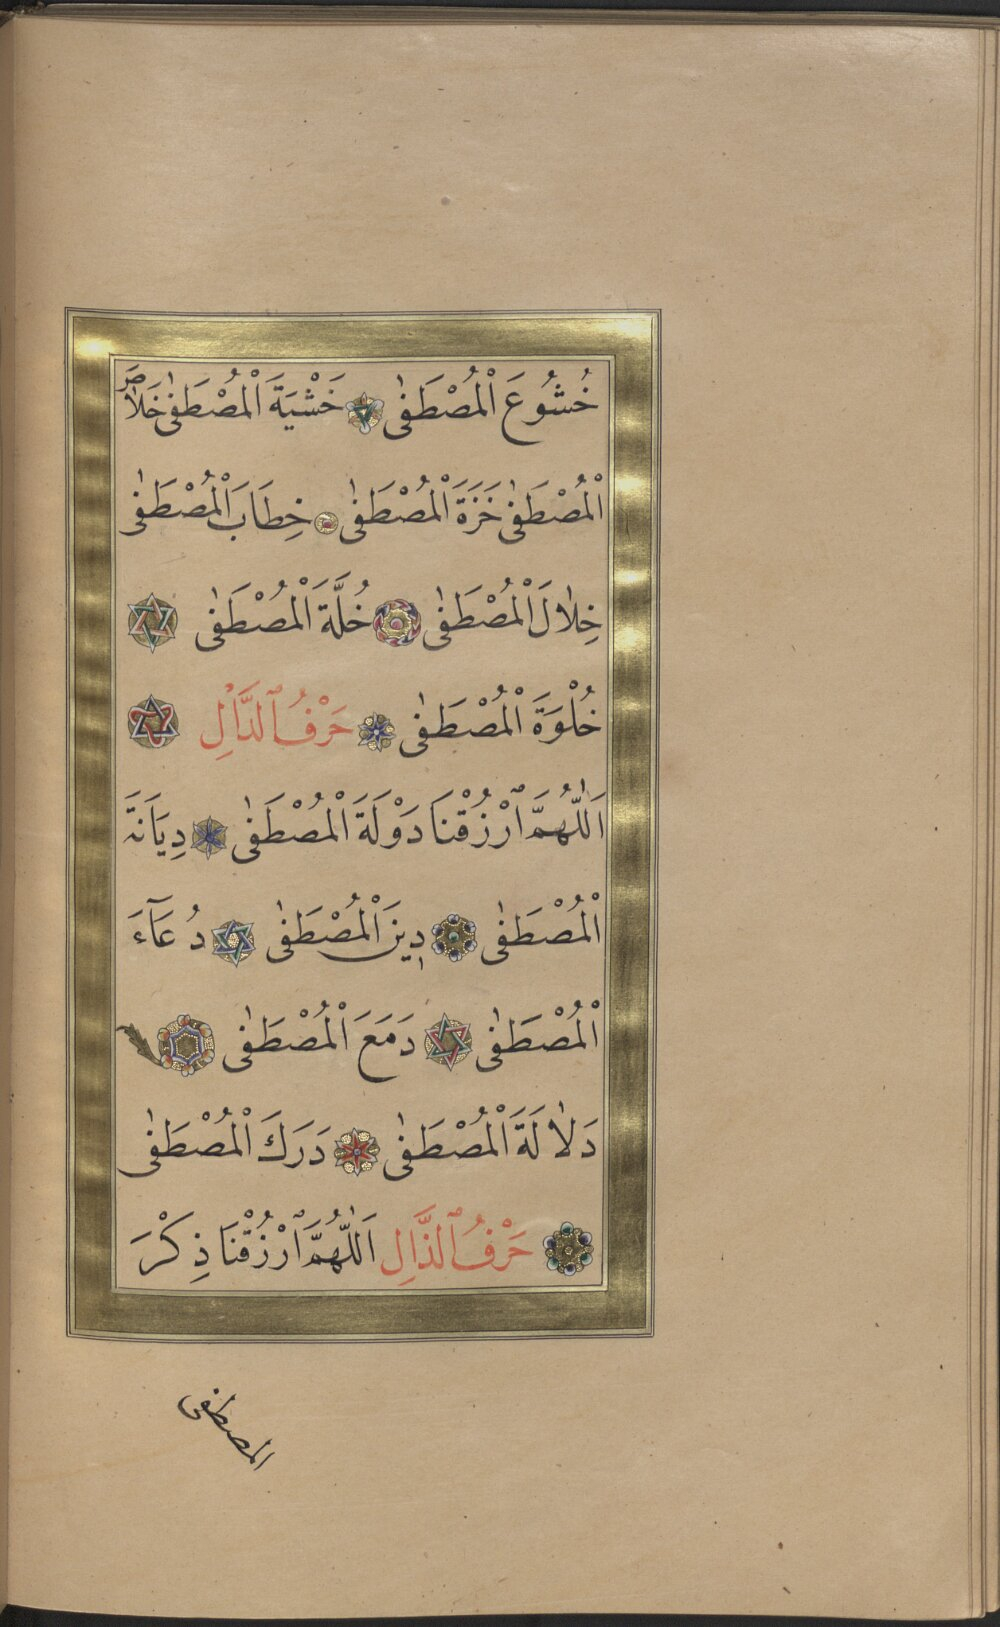 خُشُوعَ الْمُصْطَفٰى خَشْيَةَ الْمُصْطَفٰى خَلَاصَ
الْمُصْطَفٰى خَزَةَ الْمُصْطَفٰى خِطَابَ الْمُصْطَفٰى
خِلَالَ الْمُصْطَفٰى خُلَّةَ الْمُصْطَفٰى
خُلْوَةَ الْمُصْطَفٰى حَرْفُ الدَّالِ
اَللّٰهُمَّ ارْزُقْنَا دَوْلَةَ الْمُصْطَفٰى دِيَانَةَ
الْمُصْطَفٰى دِينَ الْمُصْطَفٰى دُعَآءَ
الْمُصْطَفٰى دَمَعَ الْمُصْطَفٰى
دَلَالَةَ الْمُصْطَفٰى دَرَكَ الْمُصْطَفٰى
حَرْفُ الذَّالِ اَللّٰهُمَّ ارْزُقْنَا ذِكْرَ
المصطفى